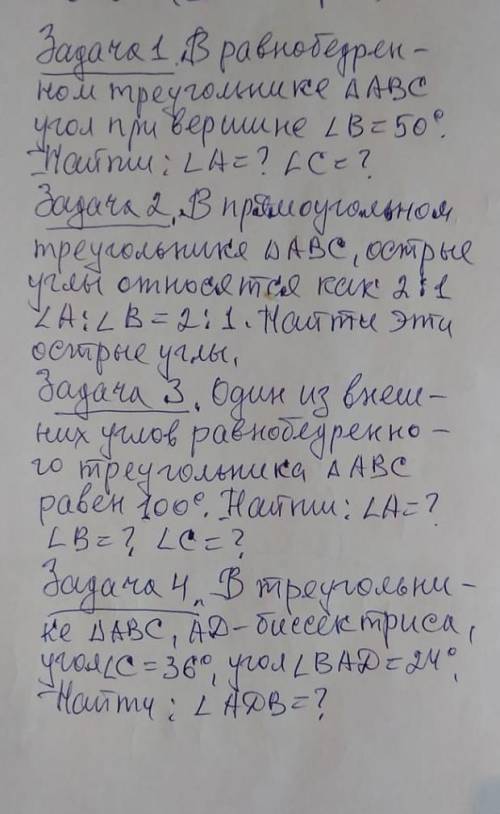 Задача 1. В равнобедрен-
ном треугольнике ΔABC
угол при вершине ∠B=50°.
Найти: ∠A=? ∠C=?
Задача 2. В прямоугольном
треугольнике ΔABC, острые
углы относятся как 2:1
∠A:∠B=2:1. Найти эти
острые углы.
Задача 3. Один из внеш-
них углов равнобедренно-
го треугольника ΔABC
равен 100°. Найти: ∠A=?
∠B=? ∠C=?
Задача 4. В треугольни-
ке ΔABC, AD-биссектриса,
угол∠C=36°, угол∠BAD=24°.
Найти: ∠ADB=?